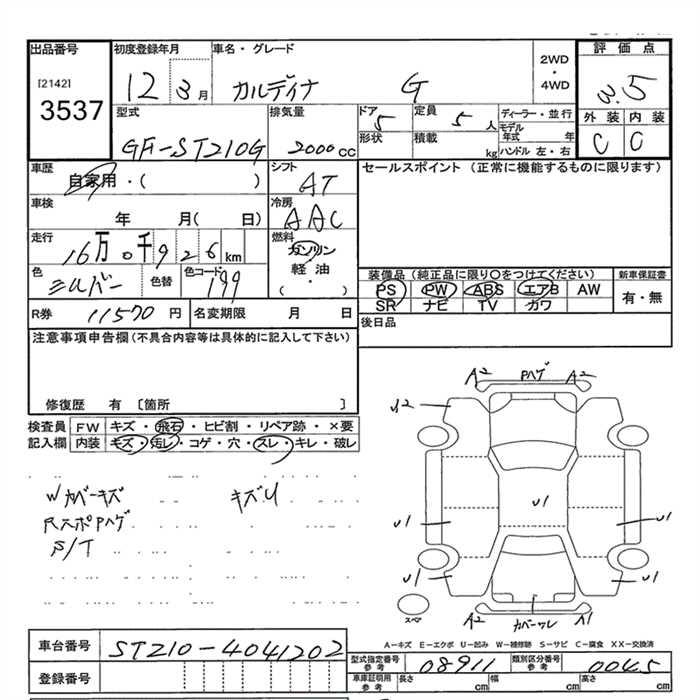 出品番号
[2142]
3537
初度登録年月
12 3月
車名・グレード
カルディナ G
2WD
・
4WD
評価点
3.5
外装 内装
C C
型式
GF-ST210G
排気量
2000cc
ドア
5
形状
定員
5人
積載
kg
ディーラー・並行
モデル年式 年
ハンドル 左・右
車歴
自家用・( )
シフト
AT
セールスポイント(正常に機能するものに限ります)
車検
年 月( 日)
冷房
AAC
走行
16万0千926km
燃料
ガソリン
軽油
( ・ )
色
シルバー
色替
色コード
199
装備品(純正品に限り○をつけてください)
PS PW ABS エアB AW
SR ナビ TV カワ
新車保証書
有・無
R券 11570円
名変期限 月 日
後日品
注意事項申告欄(不具合内容等は具体的に記入して下さい)
修復歴 有 〔箇所 〕
検査員記入欄
FW キズ・飛石・ヒビ割・リペア跡・×要
内装 キズ・汚レ・コゲ・穴・スレ・キレ・破レ
Wカバーキズ キズU
RスポPハゲ
S/T
A2 Pハゲ A2
U2
U1
U1 U1
U1 U1
スペア
A2 カバーワレ A1
A-キズ E-エクボ U-凹み W-補修跡 S-サビ C-腐食 XX-交換済
車台番号 ST210-4041202
登録番号
型式指定番号参考 08911
類別区分番号参考 0045
車庫証明用参考 長さ cm 幅 cm 高さ cm